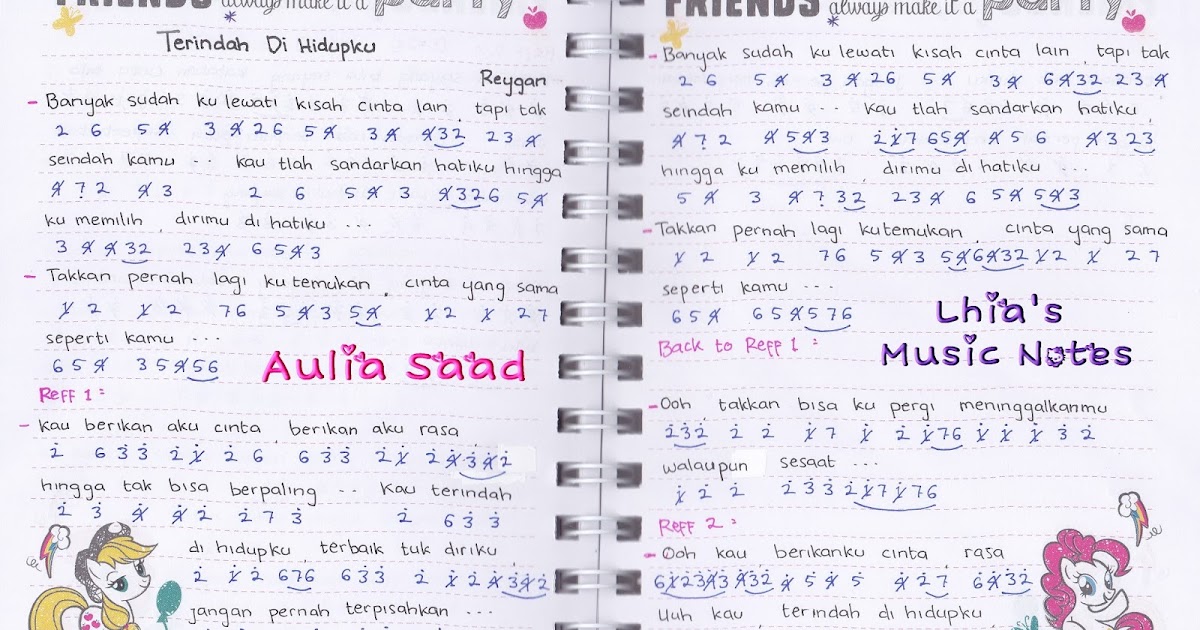 FRIENDS always make it a party
Terindah Di Hidupku
Reygan
- Banyak sudah ku lewati kisah cinta lain, tapi tak
2 6 5 4̸ 3 4̸ 2 6 5 4̸ 3 4̸ 4̸32 2 3 4̸
seindah kamu ... kau tlah sandarkan hatiku hingga
4̸ ? 2 4̸ 3 2 6 5 4̸ 3 4̸326 5 4̸
ku memilih, dirimu di hatiku ...
3 4̸ 4̸32 2 3 4̸ 6 5 4̸ 3
- Takkan pernah lagi ku temukan, cinta yang sama
1̸ 2 1̸ 2 7 6 5 4̸ 3 5 4̸ 1̸ 2 1̸ 2 7
seperti kamu ...
6 5 4̸ 3 5 4̸ 5 6
Reff 1 :
- Kau berikan aku cinta, berikan aku rasa
2̇ 6 3̇ 3̇ 2̇ 1̸̇ 2̇ 6 6 3̇ 3̇ 2̇ 1̸̇ 2̇ 4̸̇ 3̇ 4̸̇ 2̇
hingga tak bisa berpaling .. Kau terindah
2̇ 3̇ 4̸̇ 4̸̇ 2̇ 2̇ 7 3̇ 2̇ 6 3̇ 3̇
di hidupku, terbaik tuk diriku
2̇ 1̸̇ 2̇ 676 6 3̇ 3̇ 2̇ 1̸̇ 2̇ 4̸̇ 3̇ 4̸̇ 2̇
jangan pernah terpisahkan ...
Aulia Saad
FRIENDS always make it a party
- Banyak sudah ku lewati kisah cinta lain, tapi tak
2 6 5 4̸ 3 4̸ 2 6 5 4̸ 3 4̸ 6 4̸32 2 3 4̸
seindah kamu ... kau tlah sandarkan hatiku,
4̸ ? 2 4̸ 5 4̸ 3 2̇ 1̸̇ 7 6 5 4̸ 4̸ 5 6 4̸ 3 2 3
hingga ku memilih, dirimu di hatiku ...
5 4̸ 3 4̸ ? 3 2 2 3 4̸ 6 5 4̸ 5 4̸ 3
- Takkan pernah lagi kutemukan, cinta yang sama
1̸ 2 1̸ 2 7 6 5 4̸ 3 5 4̸ 6 4̸ 3 2 1̸ 2 1̸ 2 7
seperti kamu ...
6 5 4̸ 6 5 4̸ 5 7 6
Back to Reff 1 :
Lhia's
Music Notes
- Ooh, takkan bisa ku pergi meninggalkanmu
2̇ 3̇ 2̇ 2̇ 2̇ 1̸̇ 7 1̸̇ 2̇ 1̸̇ 7 6 1̸̇ 1̸̇ 1̸̇ 3̇ 2̇
walaupun sesaat ...
1̸̇ 2̇ 2̇ 2̇ 3̇ 3̇ 2̇ 1̸̇ 7 1̸̇ 7 6
Reff 2 :
- Ooh kau berikanku cinta rasa
6 1̸̇ 2̇ 3̇ 4̸̇ 3̇ 4̸̇ 3̇ 2̇ 4̸̇ 5̇ 4̸̇ 5̇ 4̸̇ 2̇ 7 6 4̸̇ 3̇ 2̇
Uuh kau terindah di hidupku,